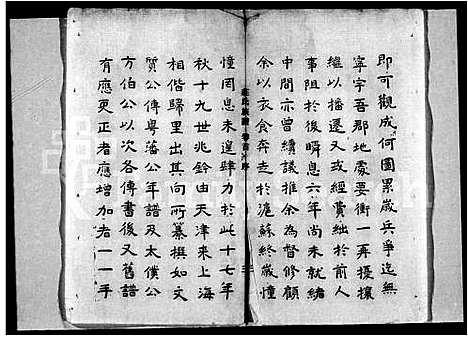 即可觀成何圖累歲兵爭迄無
寧宇吾郡地處要衝一再擾攘
繼以播遷又或經費絀於前人
事阻於後瞬息六年尚未就緒
中間亦曾續議推余為督修顧
余以衣食奔走於滬蘇終歲憧
憧罔息未遑肆力於此十七年
秋十九世兆鈴由天津來上海
相偕歸里出其向所纂撰如文
質公傳粵藩公年譜及太僕公
方伯公以次各傳書後又舊譜
有應更正者應增加者一一手